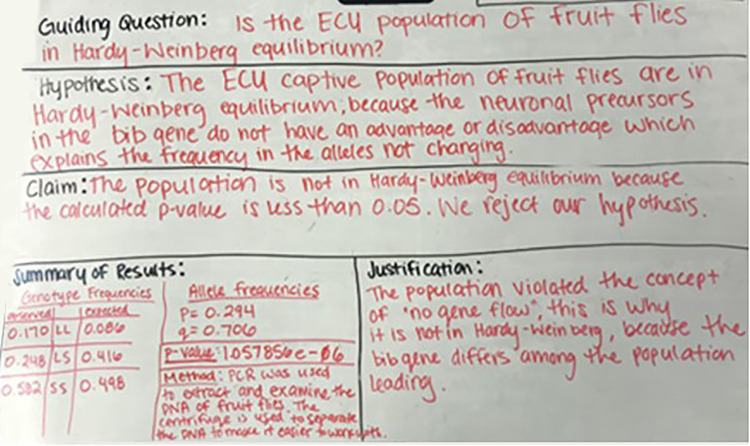 Guiding Question: Is the ECU population of fruit flies
in Hardy-Weinberg equilibrium?
Hypothesis: The ECU captive population of fruit flies are in
Hardy-Weinberg equilibrium, because the neuronal precursors
in the bib gene do not have an advantage or disadvantage which
explains the frequency in the alleles not changing.
Claim: The population is not in Hardy-Weinberg equilibrium because
the calculated p-value is less than 0.05. We reject our hypothesis.
Summary of Results:
Genotype Frequencies
observed expected
0.170 LL 0.086
0.248 LS 0.416
0.582 SS 0.498
Allele frequencies
p= 0.294
q= 0.706
P-value: 1.057856e-06
Method: PCR was used
to extract and examine the
DNA of fruit flies. The
centrifuge is used to separate
the DNA to make it easier to work
Justification:
The population violated the concept
of "no gene flow", this is why
it is not in Hardy-Weinberg, because the
bib gene differs among the population
leading.